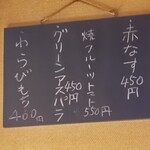 赤なす
450円
焼フルーツトマト
550円
グリーンアスパラ
450円
わらびもち
400円